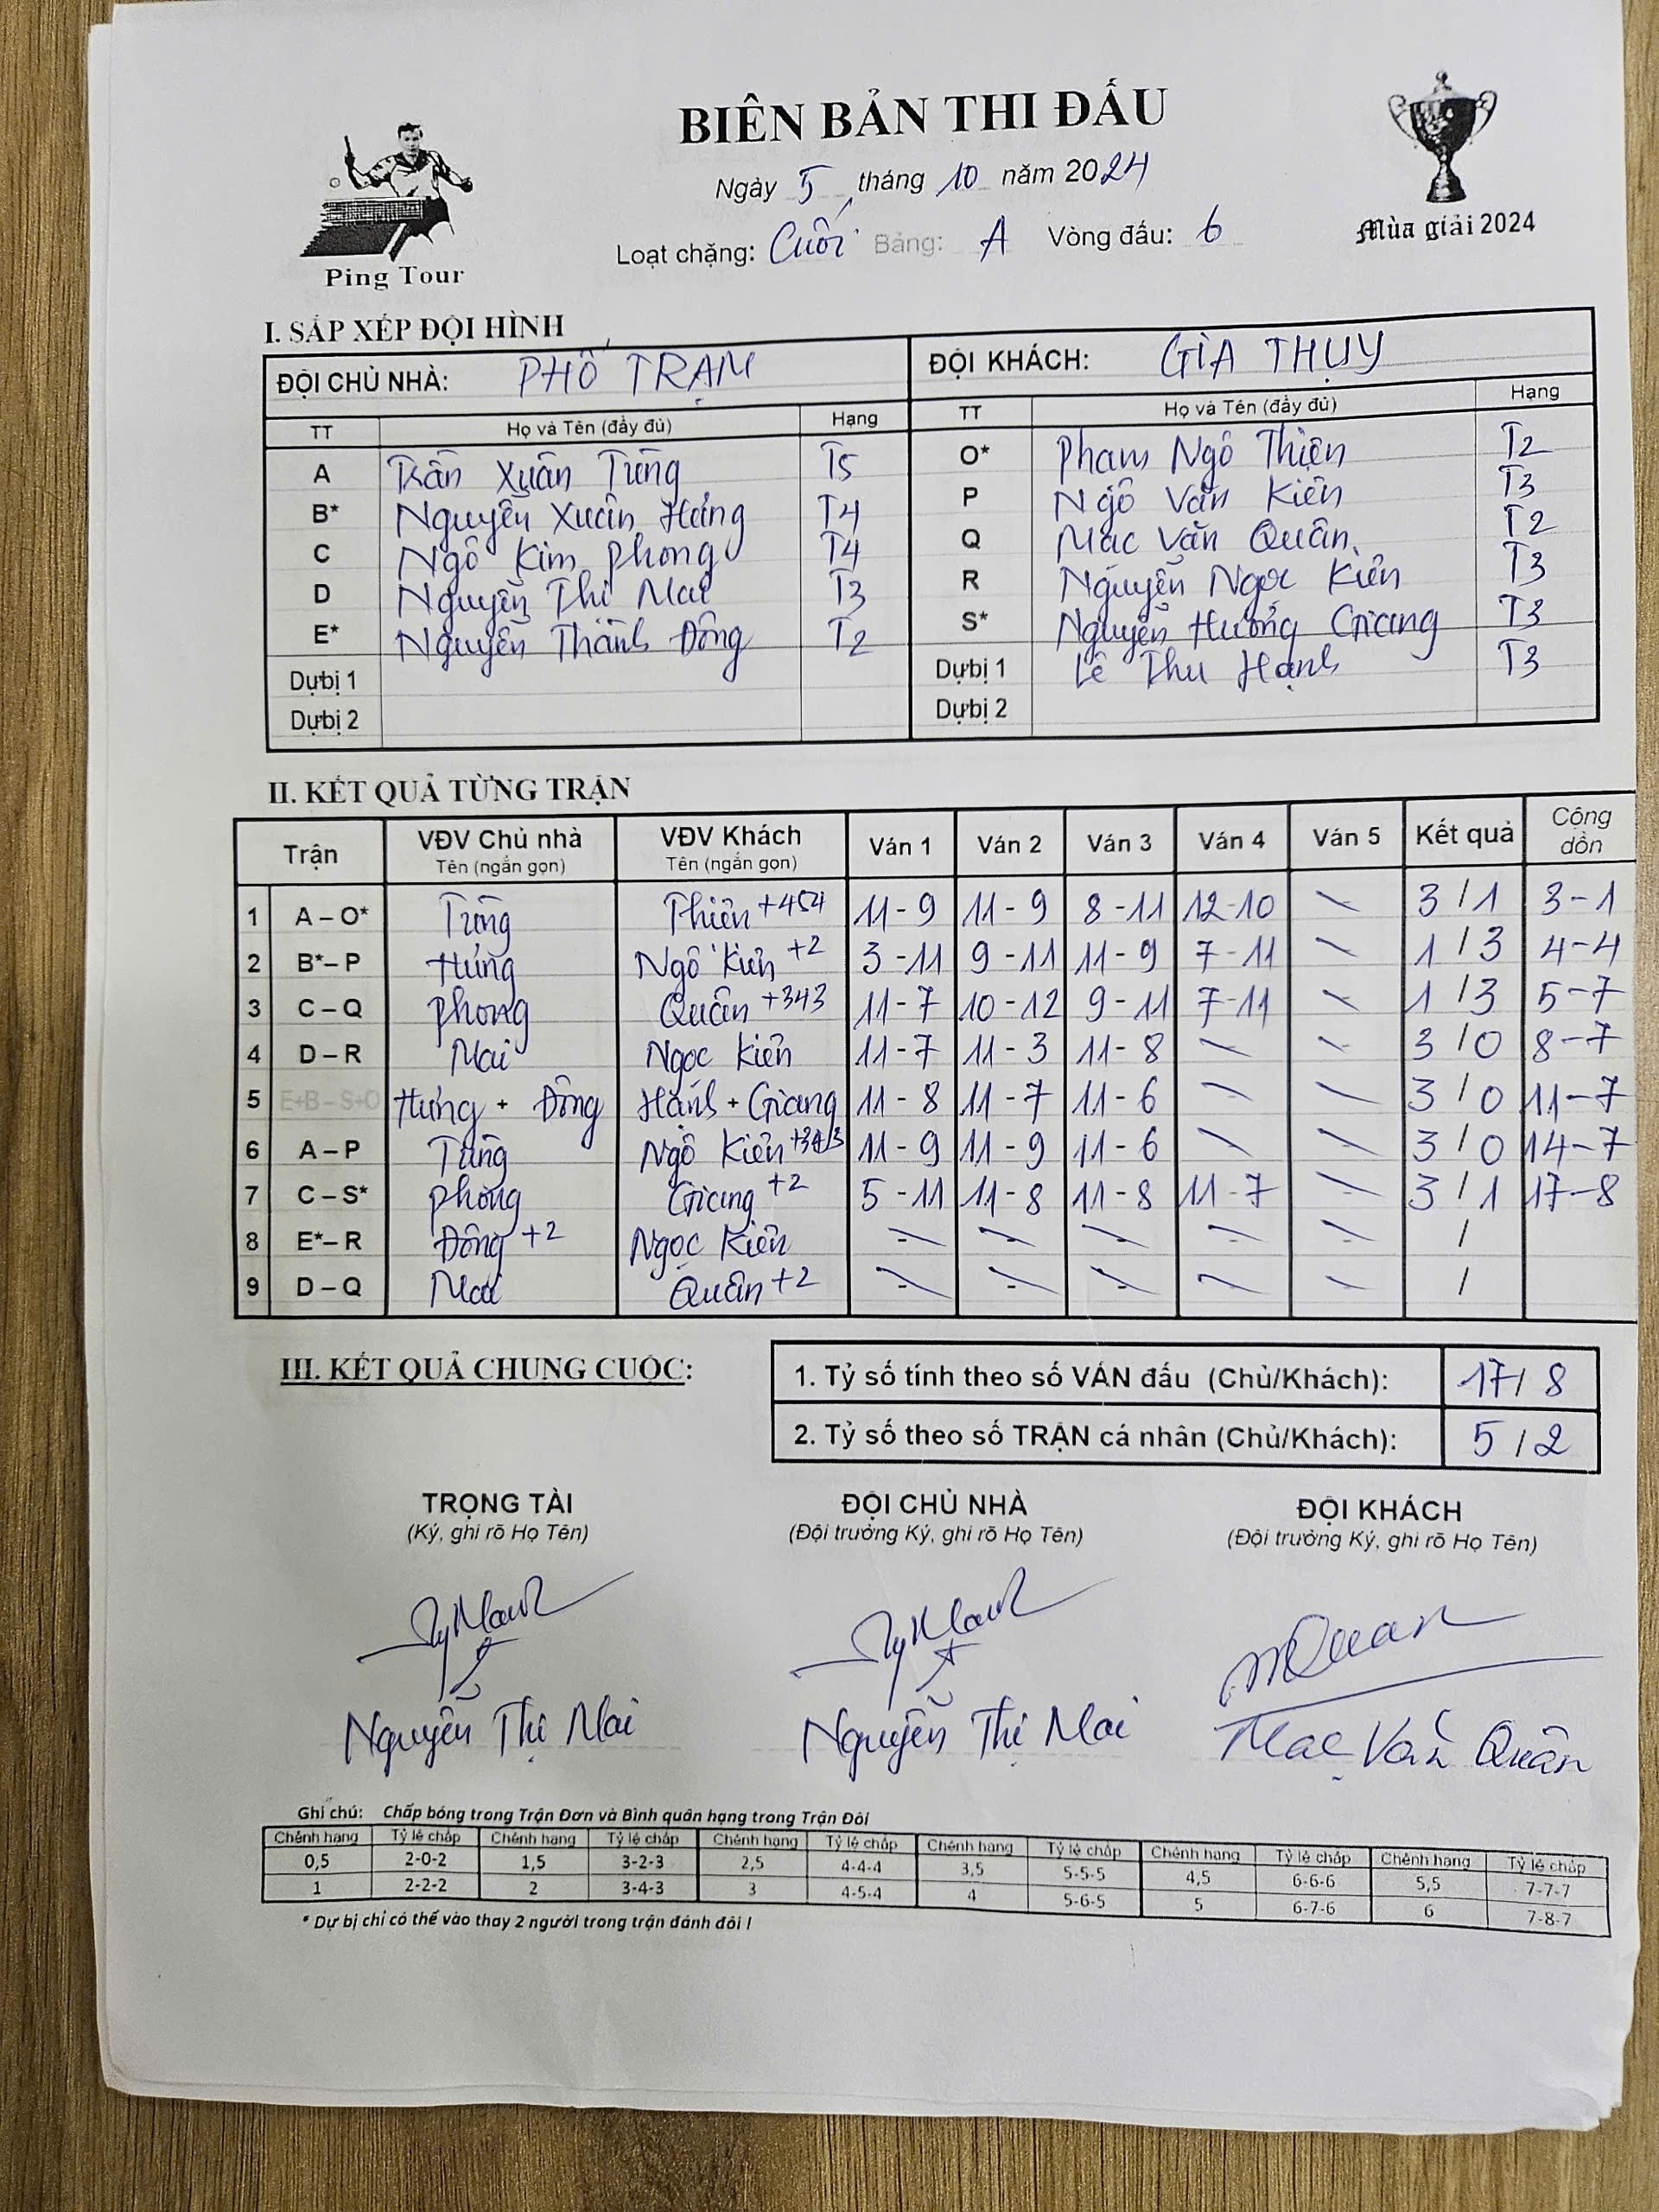 BIÊN BẢN THI ĐẤU
Ngày 5 tháng 10 năm 2024
Loạt chặng: Cuối Bảng: A Vòng đấu: 6
Ping Tour
Mùa giải 2024
I. SẮP XẾP ĐỘI HÌNH
ĐỘI CHỦ NHÀ: PHỐ TRẠM ĐỘI KHÁCH: GIA THỤY
TT Họ và Tên (đầy đủ) Hạng TT Họ và Tên (đầy đủ) Hạng
A Trần Xuân Tùng T5 O* Phạm Ngô Thiện T2
B* Nguyễn Xuân Hưng T4 P Ngô Văn Kiên T3
C Ngô Kim Phong T4 Q Mạc Văn Quân T2
D Nguyễn Thị Mai T3 R Nguyễn Ngọc Kiên T3
E* Nguyễn Thành Đông T2 S* Nguyễn Hương Giang T3
Dự bị 1 Dự bị 1 Lê Thu Hạnh T3
Dự bị 2 Dự bị 2
II. KẾT QUẢ TỪNG TRẬN
Trận VĐV Chủ nhà Tên (ngắn gọn) VĐV Khách Tên (ngắn gọn) Ván 1 Ván 2 Ván 3 Ván 4 Ván 5 Kết quả Cộng dồn
1 A – O* Tùng Thiên +454 11 - 9 11 - 9 8 - 11 12 - 10 \ 3 / 1 3 - 1
2 B* – P Hưng Ngô Kiên +2 3 - 11 9 - 11 11 - 9 7 - 11 \ 1 / 3 4 - 4
3 C – Q Phong Quân +343 11 - 7 10 - 12 9 - 11 7 - 11 \ 1 / 3 5 - 7
4 D – R Mai Ngọc Kiên 11 - 7 11 - 3 11 - 8 \ \ 3 / 0 8 - 7
5 E+B – S+O Hưng + Đông Hạnh + Giang 11 - 8 11 - 7 11 - 6 \ \ 3 / 0 11 - 7
6 A – P Tùng Ngô Kiên +343 11 - 9 11 - 9 11 - 6 \ \ 3 / 0 14 - 7
7 C – S* Phong Giang +2 5 - 11 11 - 8 11 - 8 11 - 7 \ 3 / 1 17 - 8
8 E* – R Đông +2 Ngọc Kiên \ \ \ \ \ /
9 D – Q Mai Quân +2 \ \ \ \ \ /
III. KẾT QUẢ CHUNG CUỘC:
1. Tỷ số tính theo số VÁN đấu (Chủ/Khách): 17 / 8
2. Tỷ số theo số TRẬN cá nhân (Chủ/Khách): 5 / 2
TRỌNG TÀI ĐỘI CHỦ NHÀ ĐỘI KHÁCH
(Ký, ghi rõ Họ Tên) (Đội trưởng Ký, ghi rõ Họ Tên) (Đội trưởng Ký, ghi rõ Họ Tên)
Nguyễn Thị Mai Nguyễn Thị Mai Mạc Văn Quân
Ghi chú: Chấp bóng trong Trận Đơn và Bình quân hạng trong Trận Đôi
Chênh hạng Tỷ lệ chấp Chênh hạng Tỷ lệ chấp Chênh hạng Tỷ lệ chấp Chênh hạng Tỷ lệ chấp Chênh hạng Tỷ lệ chấp Chênh hạng Tỷ lệ chấp
0,5 2-0-2 1,5 3-2-3 2,5 4-4-4 3,5 5-5-5 4,5 6-6-6 5,5 7-7-7
1 2-2-2 2 3-4-3 3 4-5-4 4 5-6-5 5 6-7-6 6 7-8-7
* Dự bị chỉ có thể vào thay 2 người trong trận đánh đôi !